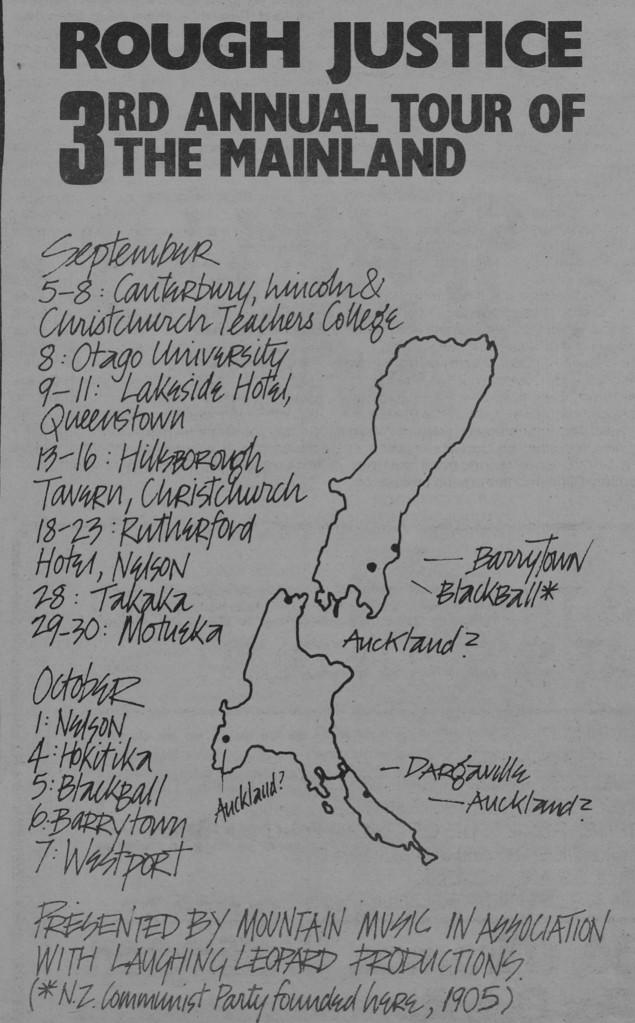 ROUGH JUSTICE
3RD ANNUAL TOUR OF
THE MAINLAND
September
5-8: Canterbury, Lincoln &
Christchurch Teachers College
8: Otago University
9-11: Lakeside Hotel,
Queenstown
13-16: Hillsborough
Tavern, Christchurch
18-23: Rutherford
Hotel, Nelson
28: Takaka
29-30: Motueka
October
1: Nelson
4: Hokitika
5: Blackball
6: Barrytown
7: Westport
— Barrytown
Blackball*
Auckland?
Auckland?
- Dargaville
— Auckland?
PRESENTED BY MOUNTAIN MUSIC IN ASSOCIATION
WITH LAUGHING LEOPARD PRODUCTIONS.
(* N.Z. Communist Party founded here, 1905)